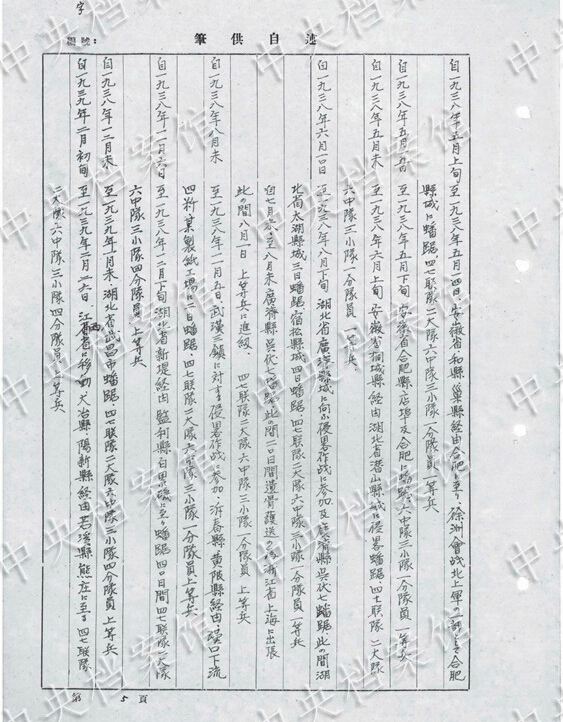 筆供自述
自一九三八年五月上旬 至一九三八年五月一四日、安徽省和縣、巢縣経由合肥に至り、徐州會战北上軍の一部として合肥
縣城に蟠踞、四七联隊二大隊六中隊三小隊一分隊員 一等兵
自一九三八年五月 至一九三八年五月下旬 安徽省合肥縣店埠及合肥に蟠踞 六中隊三小隊一分隊員 一等兵
自一九三八年五月末 至一九三八年六月上旬 安徽省桐城縣経由湖北省潜山縣城に侵畧蟠踞、四七联隊二大隊
六中隊三小隊一分隊員 一等兵、
自一九三八年六月一〇日 至一九三八年八月下旬 湖北省廣濟縣城に向ふ侵畧作战に参加及廣濟縣呉伏七蟠踞、此の間湖
北省太湖縣城三日蟠踞、宿松縣城四日蟠踞、四七联隊二大隊六中隊三小隊一分隊員 一等兵
自七月 至八月末 廣濟縣呉伏七蟠踞 此の間二〇日間遺骨護送の 浙江省上海に出張
此の間八月一日 上等兵に進級、 四七联隊二大隊六中隊三小隊一分隊員 上等兵
自一九三八年八月末 至一九三八年一一月五日、武漢三鎮に対する侵畧作战に参加、沂春縣、黄陂縣経由、漢口下流
四粁某製紙工場に二日蟠踞、四七联隊二大隊六中隊三小隊一分隊員、上等兵
自一九三八年一一月六日 至一九三八年一二月下旬 湖北省新堤経由監利縣白果 に至り蟠踞四〇日間 四七联隊二大隊
六中隊三小隊四分隊員 上等兵
自一九三八年一二月末 至一九三九年一月末 湖北省武昌市蟠踞 四七联隊二大隊六中隊三小隊四分隊員 上等兵
自一九三九年二月初旬 至一九三九年二月一六日、江西省に移動 大冶縣、陽新縣経由若溪縣熊庄に至る 四七联隊
二大隊六中隊三小隊四分隊員 上等兵
第 5 頁
中央档案馆